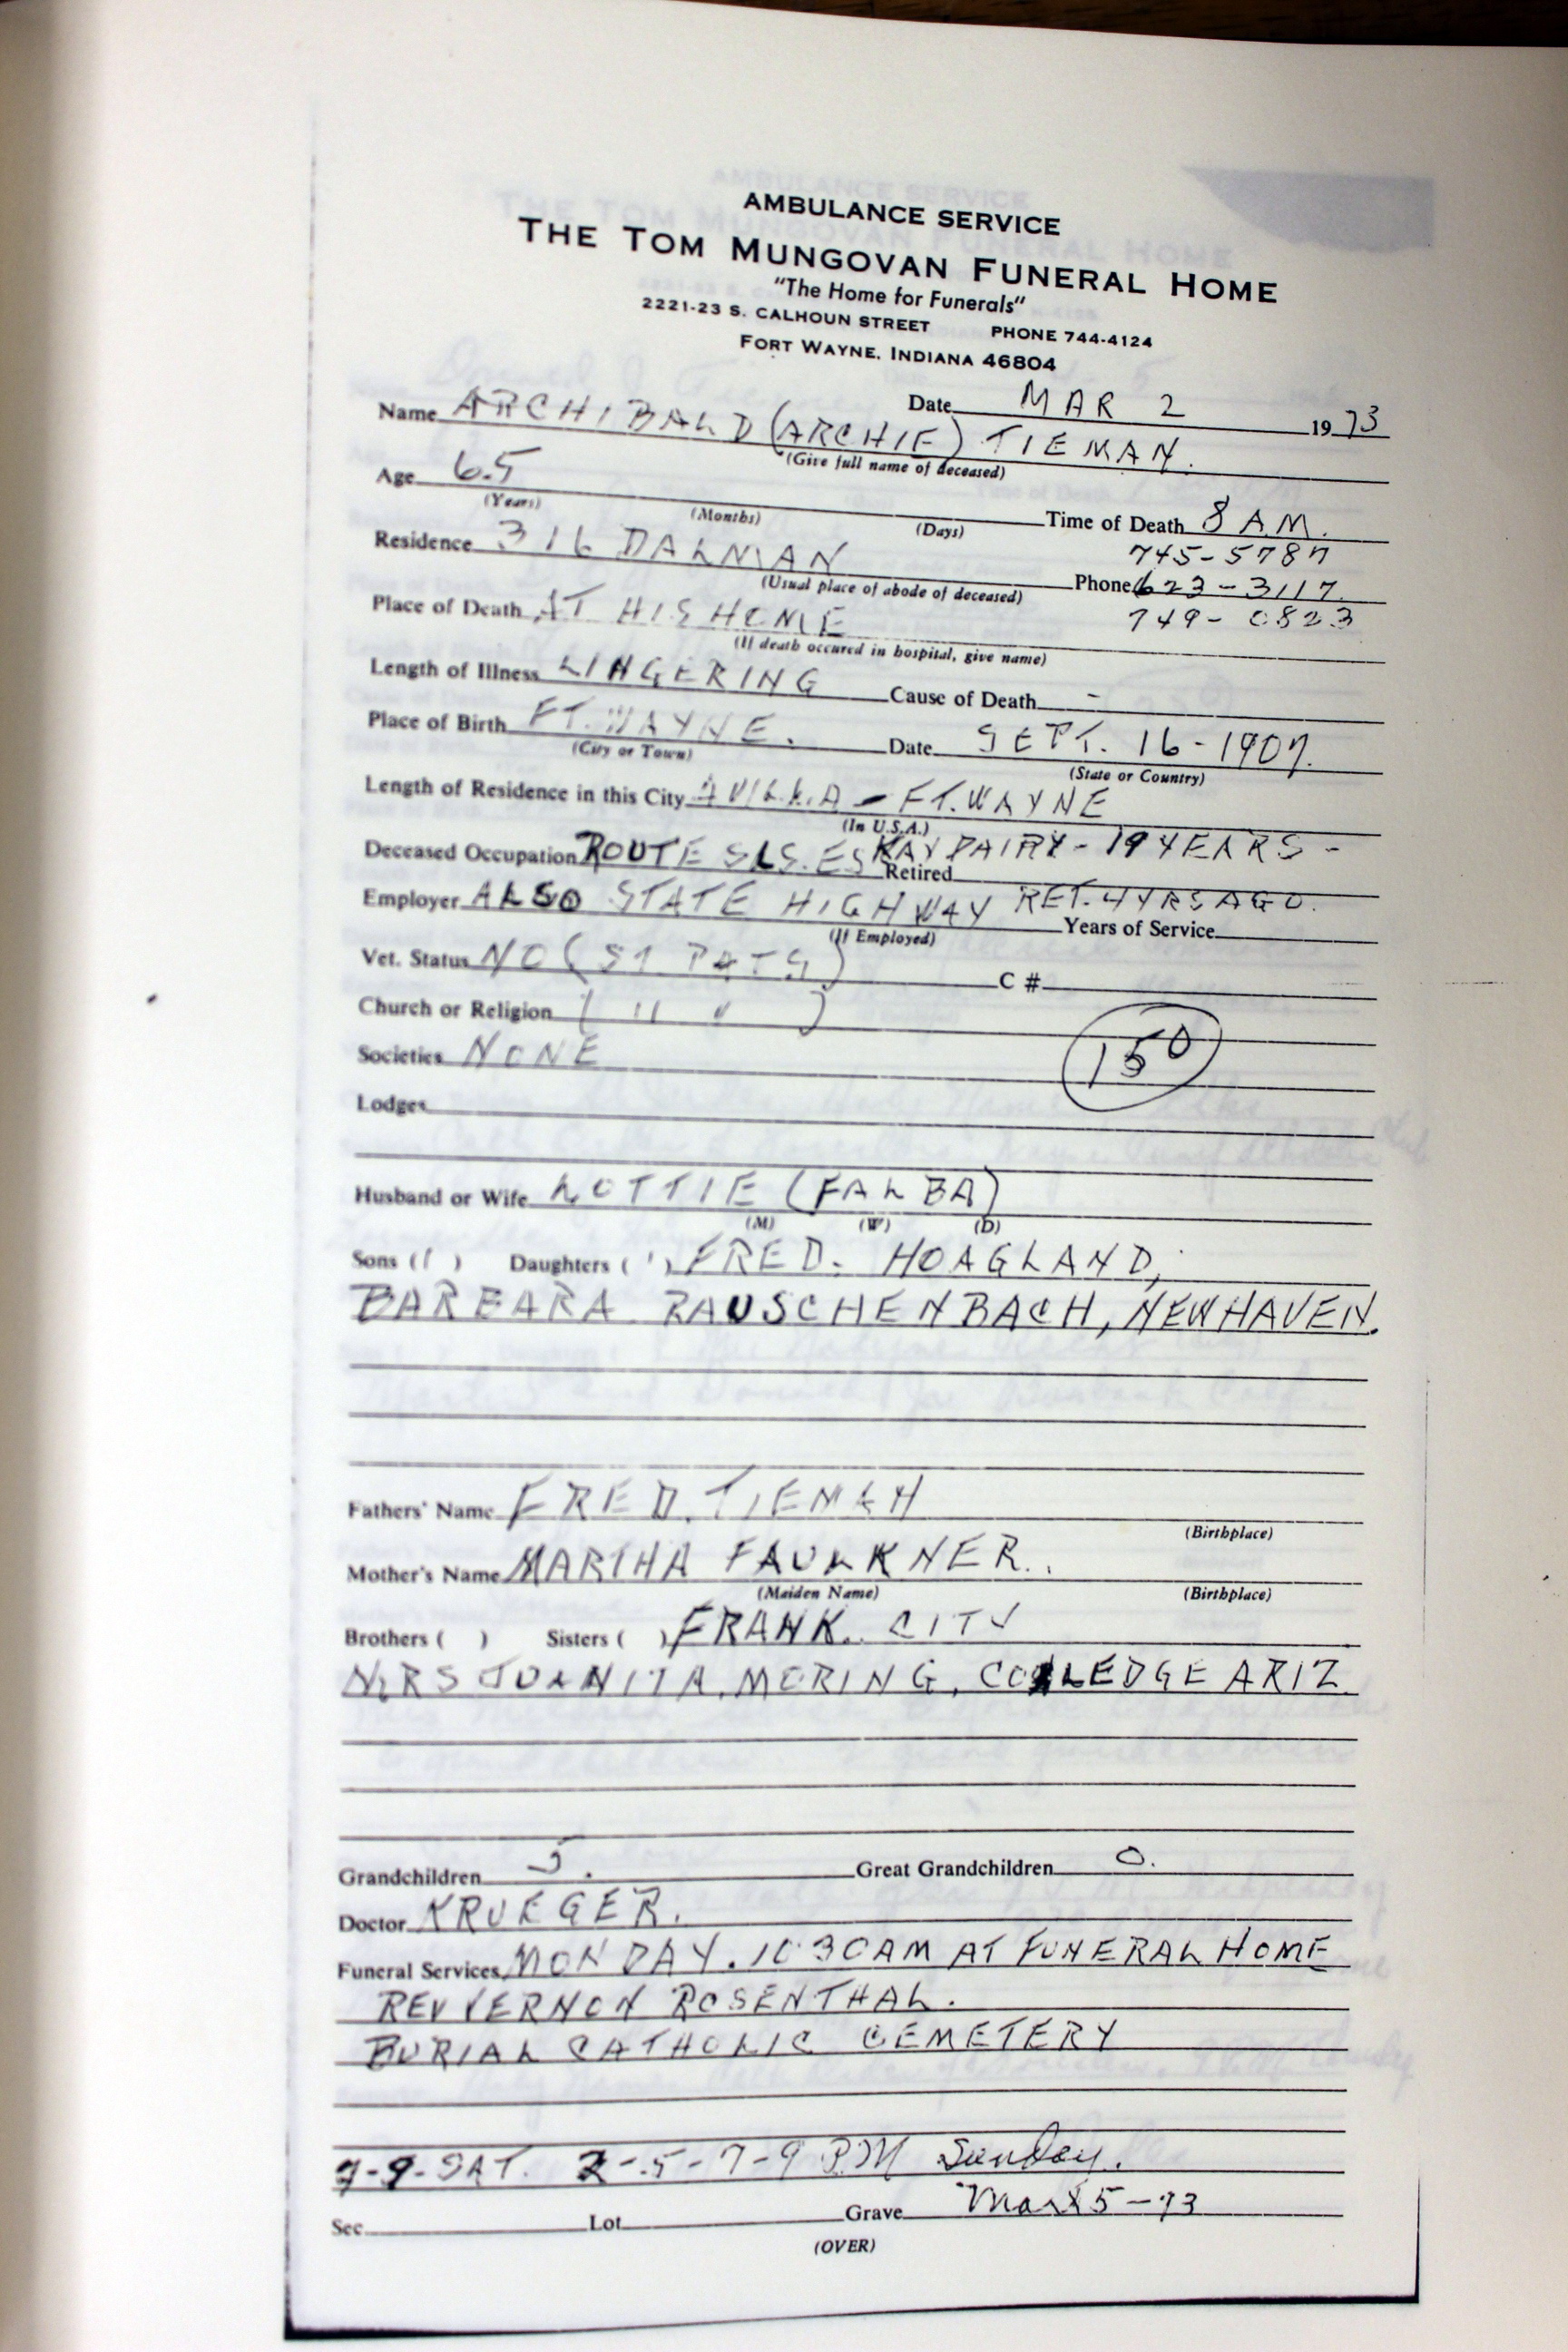 AMBULANCE SERVICE
THE TOM MUNGOVAN FUNERAL HOME
"The Home for Funerals"
2221-23 S. CALHOUN STREET PHONE 744-4124
FORT WAYNE, INDIANA 46804
Date MAR 2 1973
Name ARCHIBALD (ARCHIE) TIEMAN.
(Give full name of deceased)
Age 65 Time of Death 8 A.M.
(Years) (Months) (Days)
745-5787
Residence 316 DALMAN Phone 623-3117.
(Usual place of abode of deceased)
749-0823
Place of Death AT HIS HOME
(If death occured in hospital, give name)
Length of Illness LINGERING Cause of Death -
Place of Birth FT. WAYNE. Date SEPT. 16-1907.
(City or Town) (State or Country)
Length of Residence in this City AVILLA - FT. WAYNE
(In U.S.A.)
Deceased Occupation ROUTE SLS. ESKAY DAIRY - 19 YEARS -
Retired
Employer ALSO STATE HIGHWAY RET. 4 YRS AGO.
(If Employed) Years of Service
Vet. Status NO (ST PATS) C #
Church or Religion ( " " )
Societies NONE 150
Lodges
Husband or Wife LOTTIE (FALBA)
(M) (W) (D)
Sons (1) Daughters (1) FRED. HOAGLAND,
BARBARA RAUSCHENBACH, NEW HAVEN.
Fathers' Name FRED. TIEMAN
(Birthplace)
Mother's Name MARTHA FAULKNER.
(Maiden Name) (Birthplace)
Brothers ( ) Sisters ( ) FRANK. CITY
MRS JUANITA MORING, COLLEDGE ARIZ
Grandchildren 5. Great Grandchildren 0.
Doctor KRUEGER.
Funeral Services MONDAY. 10 30 AM AT FUNERAL HOME
REV VERNON ROSENTHAL.
BURIAL CATHOLIC CEMETERY
7-9-SAT. 2-5-7-9 PM Sunday.
Sec Lot Grave Mar 5-73
(OVER)